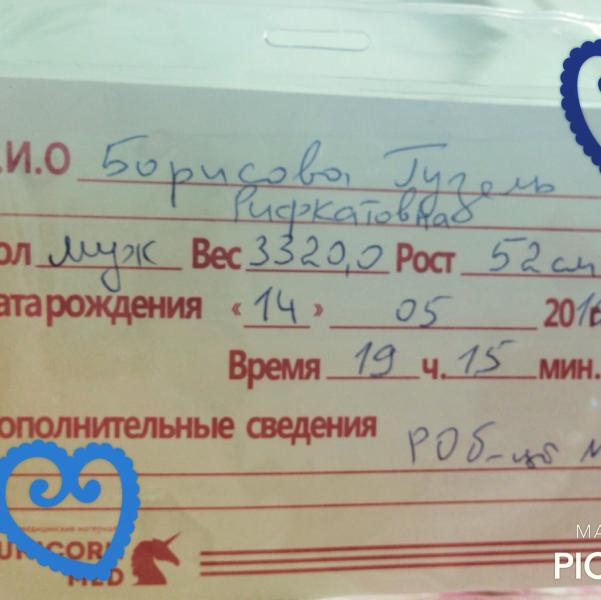 .И.О Борисова Гузель
Рифкатовна
ол муж Вес 3320,0 Рост 52 см
ата рождения «14» 05 201
Время 19 ч. 15 мин.
ополнительные сведения
РОб-
медицинские материалы
UNICORN
MED
MA
PIC